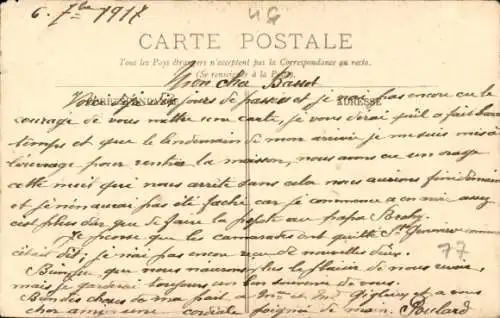 6. 7bre 1917
4G
CARTE POSTALE
Tous les Pays étrangers n'acceptent pas la Correspondance au recto.
(Se renseigner à la Poste.)
Mon cher Bassot
CORRESPONDANCE ADRESSE
Voici jours de passés et je n'ai pas encore eu le
courage de vous mettre une carte, je vous dirai qu'il a fait beau
temps et que le lendemain de mon arrivé je me suis mis a
l'ouvrage pour rentrer la maison, nous avons eu un orage
cette nuit qui nous arrête sans cela nous aurions fini demain
et je n'en aurai pas été faché car je commence a en avoir assez
c'est plus dur que de faire la au papa
Je pense que les camarades ont quitté Ste Genevieve comme
c'était dit, je n'ai pas encore reçu de nouvelles d'eux.
77
que nous n'aurons plus le plaisir de nous revoir,
mais je garderai toujours un bon souvenir de vous.
Bonnes choses de ma part a Mme et Mr et a vous
cher ami une cordiale poignée de main. Poulard